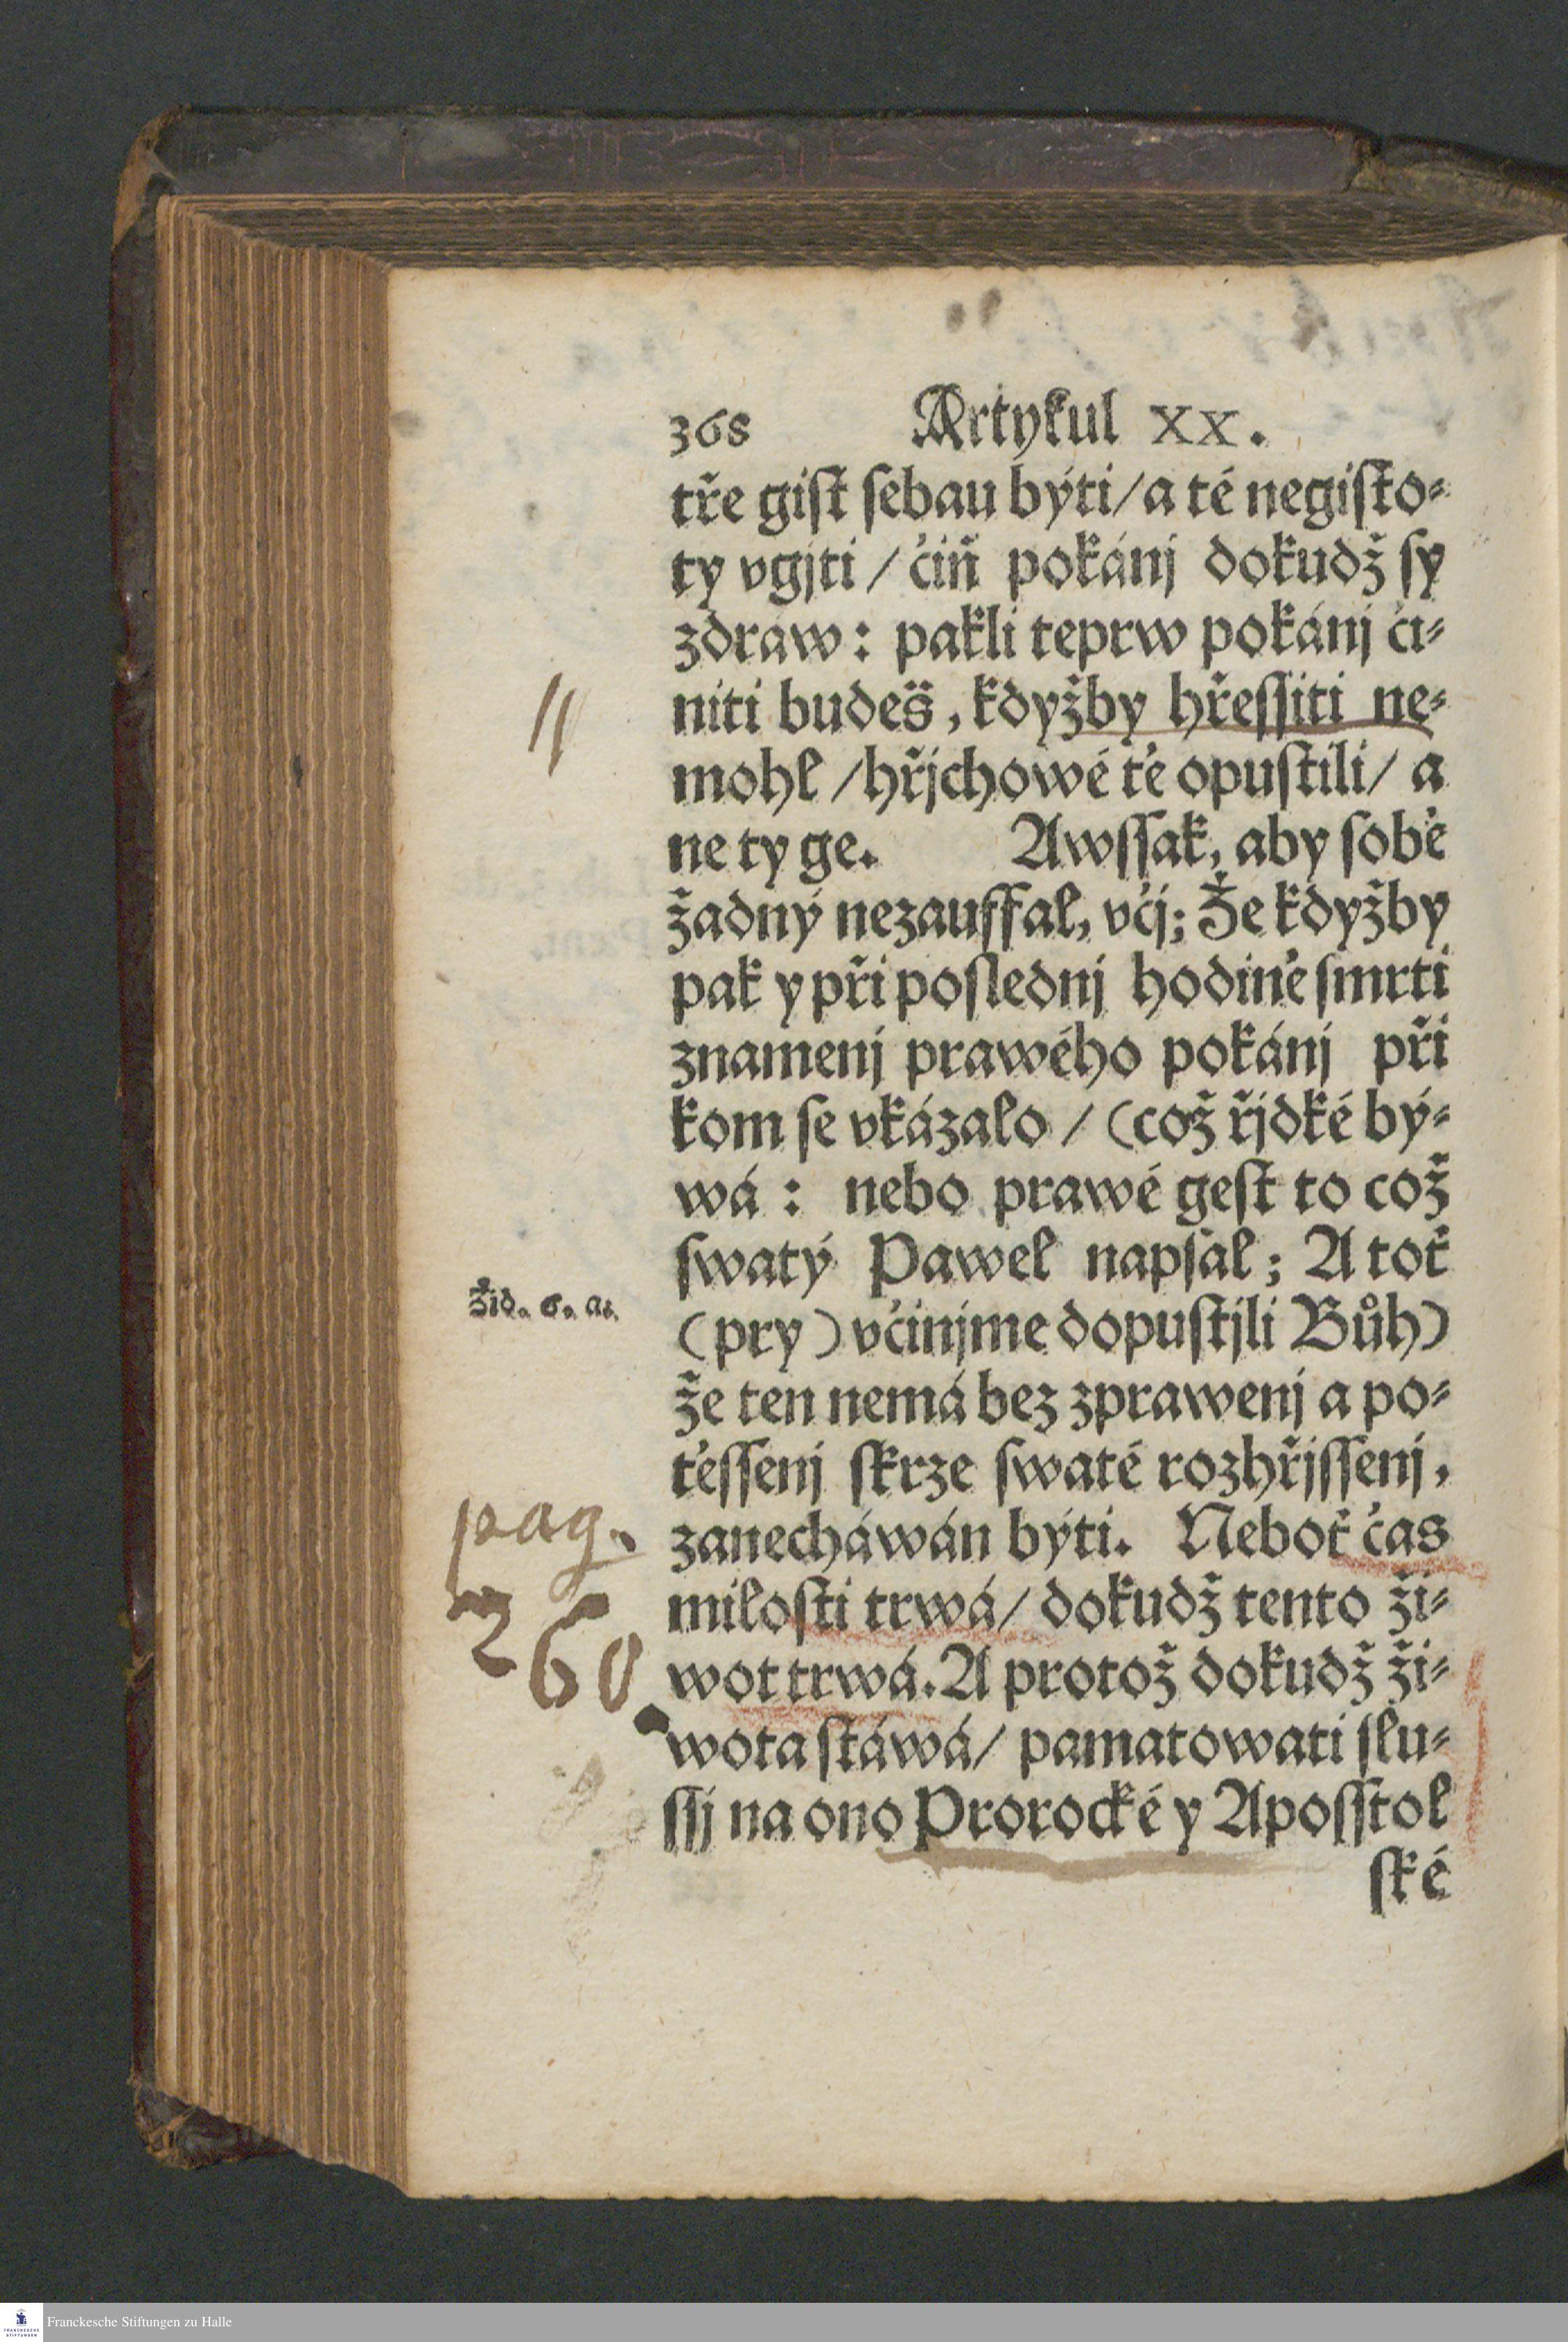 368 Artykul XX.
tře gist sebau býti/ a té negisto-
ty vgjti / čiň pokánj dokudž sy
zdráw: pakli teprw pokánj či-
niti budeš, kdyžby hřessiti ne-
mohl /hřjchowé tě opustili/ a
ne ty ge. Awssak, aby sobě
žadný nezauffal, včj; Že kdyžby
pak y při poslednj hodině smrti
znamenj prawého pokánj při
kom se vkázalo / (což řjdké bý-
wá : nebo prawé gest to což
swatý Pawel napsal; A toť
Žid. 6. a 6.
(pry) včinjme dopustjli Bůh)
že ten nemá bez zprawenj a po-
těssenj skrze swaté rozhřjssenj,
zanecháwán býti. Neboť čas
pag.
milosti trwá/ dokudž tento ži-
360
wot trwá. A protož dokudž ži-
wota stáwá/ pamatowati slu-
ssj na ono Prorocké y Aposstol
ské
Franckesche Stiftungen zu Halle